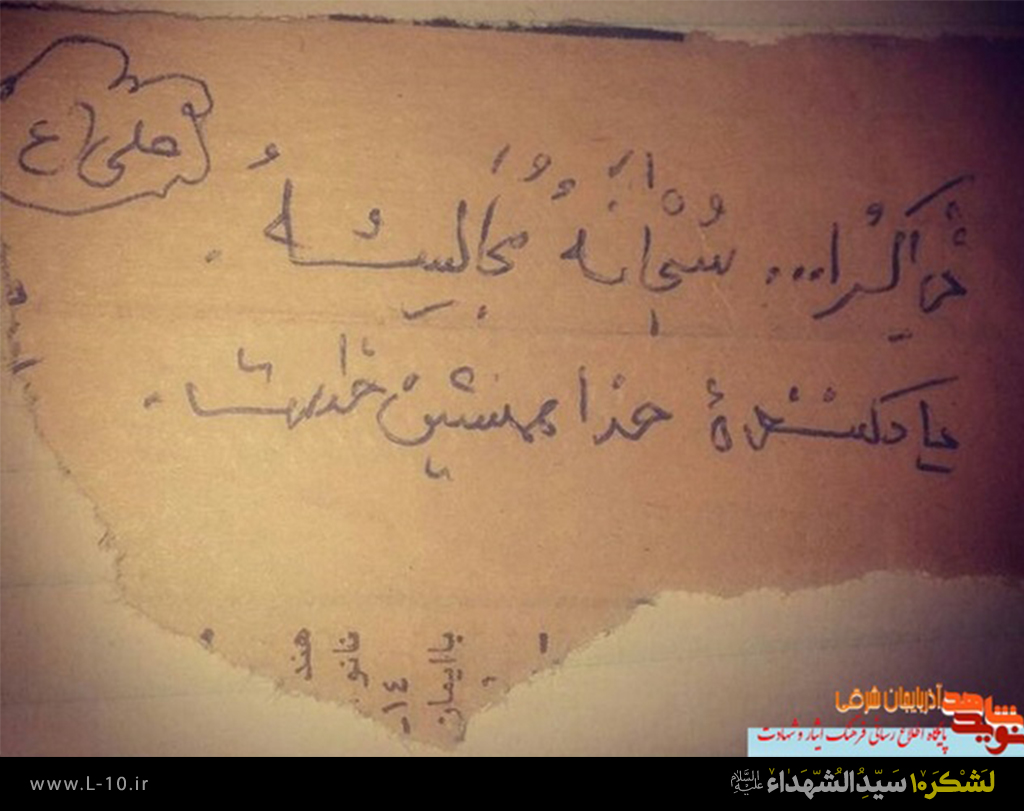 علی (ع)
ذاکِرُا... سُبحانَهُ مُجالِسُهُ.
یاد کنندهٔ خدا همنشین خداست.
باایمان
۱۴-
نانو
هند
نوید شاهد آذربایجان شرقی
پایگاه اطلاع رسانی فرهنگ ایثار و شهادت
www.L-10.ir
لَشْکَر۱۰ سَیِّدِالشُّهَداء علیه السلام